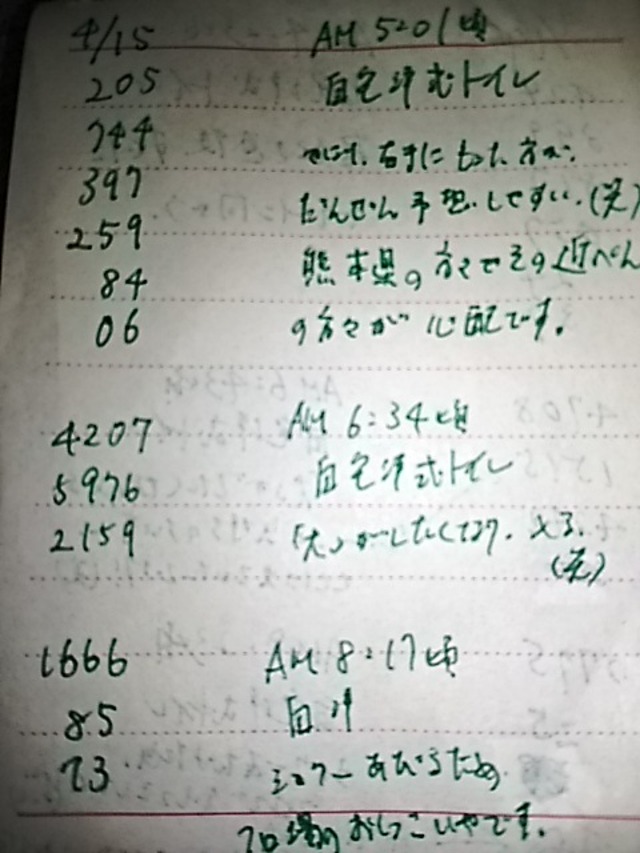 4/15 AM 5:01頃
205 自宅洋式トイレ
744
397 だんぜん予想しやすい。(笑)
259 熊本県の方々やその近ぺん
84
06 の方々が心配です。
4207 AM 6:34頃
5976 自宅洋式トイレ
2159 「大」がしたくて
(笑)
1666 AM 8:17頃
85 自洋
73 シャワーあびるため
フロ場の おしっこいやです。